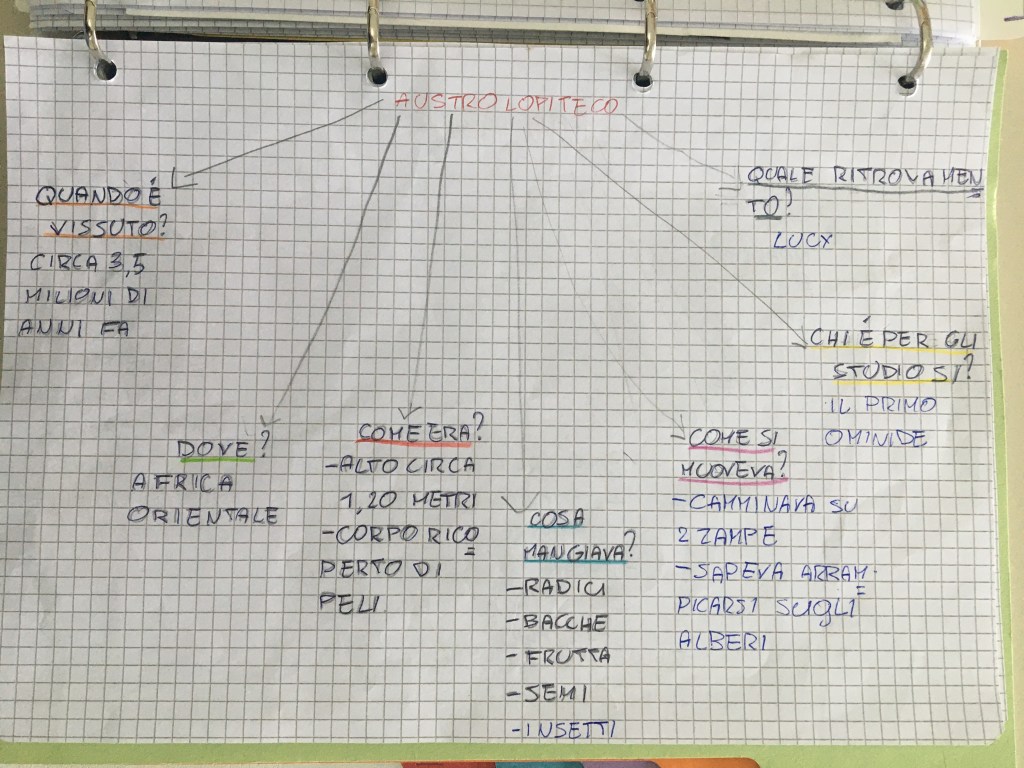 AUSTROLOPITECO
QUANDO É
VISSUTO?
CIRCA 3,5
MILIONI DI
ANNI FA
DOVE?
AFRICA
ORIENTALE
COME ERA?
-ALTO CIRCA
1,20 METRI
-CORPO RICO
PERTO DI
PELI
COSA
MANGIAVA?
-RADICI
-BACCHE
-FRUTTA
-SEMI
-INSETTI
-COME SI
MUOVEVA?
-CAMMINAVA SU
2 ZAMPE
-SAPEVA ARRAM=
PICARSI SUGLI
ALBERI
CHI É PER GLI
STUDIOSI?
IL PRIMO
OMINIDE
QUALE RITROVAMEN=
TO?
LUCY